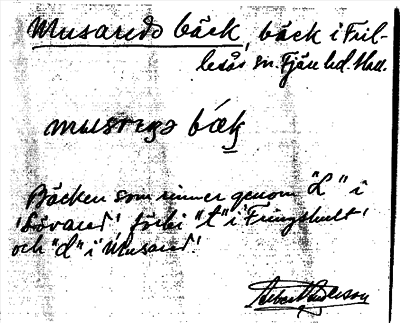 Musareds bäck, bäck i Fril-
lesås sn. Fjäre hd. Hall.
bäck
Bäcken som rinner genom "L" i
'Lövared' förbi "t" i 'Fringshult'
och "d" i 'Musared'.